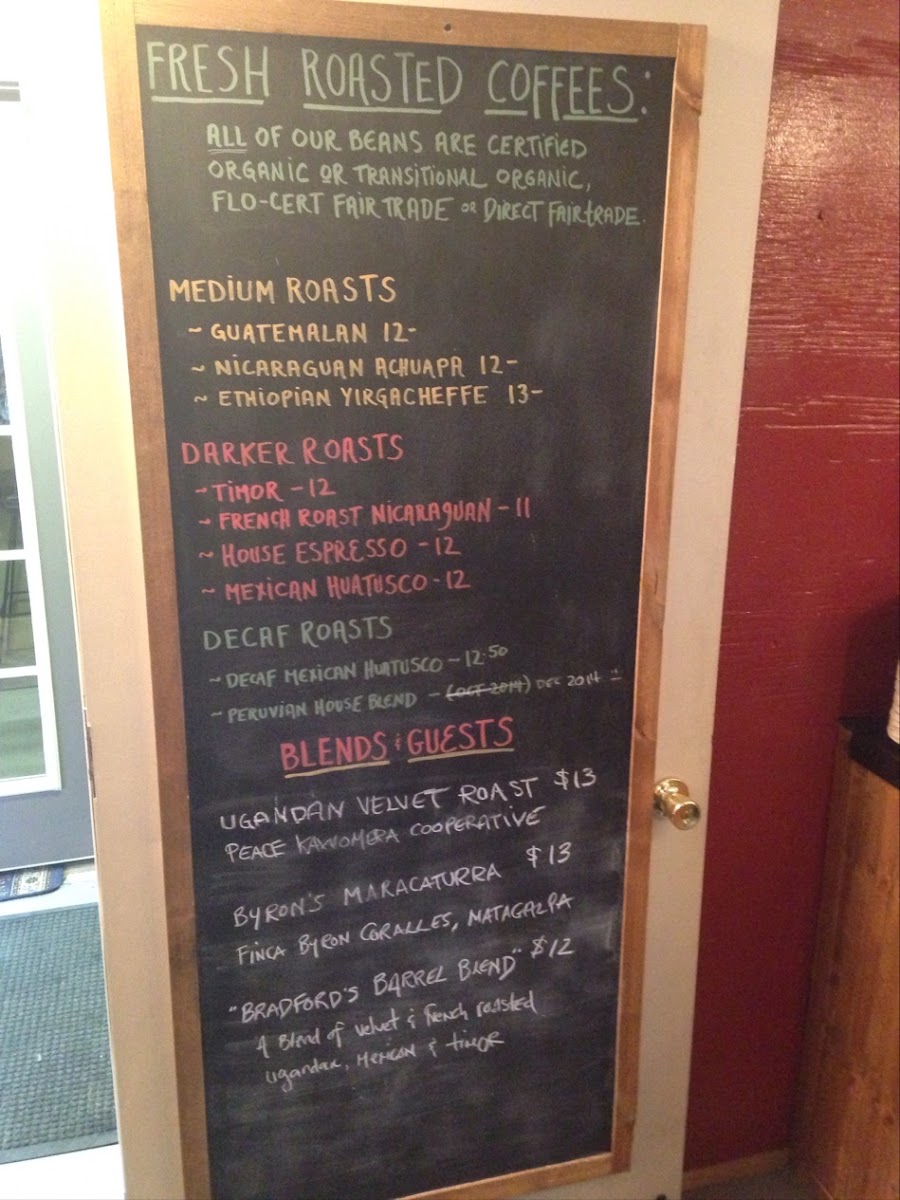 FRESH ROASTED COFFEES:
ALL OF OUR BEANS ARE CERTIFIED
ORGANIC OR TRANSITIONAL ORGANIC,
FLO-CERT FAIR TRADE OR DIRECT FAIRTRADE.
MEDIUM ROASTS
~ GUATEMALAN 12-
~ NICARAGUAN ACHUAPA 12-
~ ETHIOPIAN YIRGACHEFFE 13-
DARKER ROASTS
~ TIMOR - 12
~ FRENCH ROAST NICARAGUAN - 11
~ HOUSE ESPRESSO - 12
~ MEXICAN HUATUSCO - 12
DECAF ROASTS
~ DECAF MEXICAN HUATUSCO - 12.50
~ PERUVIAN HOUSE BLEND - (OCT 2014) DEC 2014
BLENDS & GUESTS
UGANDAN VELVET ROAST $13
PEACE KAWOMERA COOPERATIVE
BYRON'S MARACATURRA $13
FINCA BYRON CORALLES, MATAGALPA
"BRADFORD'S BARREL BLEND" $12
A Blend of velvet & french roasted
ugandan, MEXICAN & timOR